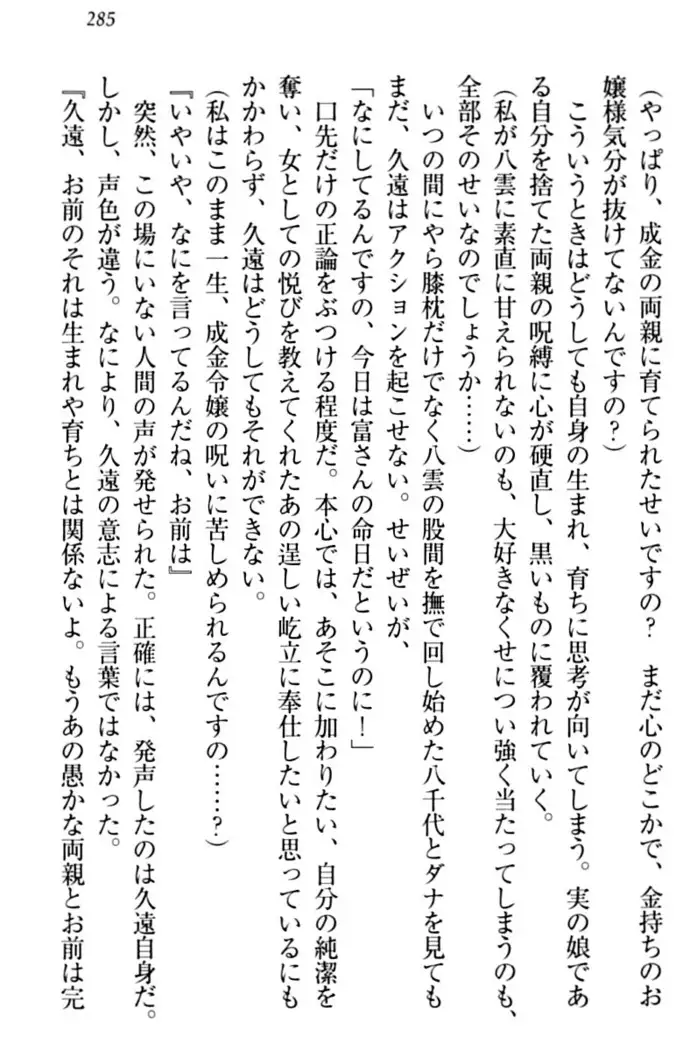 285
(やっぱり、成金の両親に育てられたせいですの?　まだ心のどこかで、金持ちのお
嬢様気分が抜けてないんですの?)
　こういうときはどうしても自身の生まれ、育ちに思考が向いてしまう。実の娘であ
る自分を捨てた両親の呪縛に心が硬直し、黒いものに覆われていく。
(私が八雲に素直に甘えられないのも、大好きなくせについ強く当たってしまうのも、
全部そのせいなのでしょうか……)
　いつの間にやら膝枕だけでなく八雲の股間を撫で回し始めた八千代とダナを見ても
まだ、久遠はアクションを起こせない。せいぜいが、
「なにしてるんですの、今日は富さんの命日だというのに!」
　口先だけの正論をぶつける程度だ。本心では、あそこに加わりたい、自分の純潔を
奪い、女としての悦びを教えてくれたあの逞しい屹立に奉仕したいと思っているにも
かかわらず、久遠はどうしてもそれができない。
(私はこのまま一生、成金令嬢の呪いに苦しめられるんですの……?)
『いやいや、なにを言ってるんだね、お前は』
　突然、この場にいない人間の声が発せられた。正確には、発声したのは久遠自身だ。
しかし、声色が違う。なにより、久遠の意志による言葉ではなかった。
『久遠、お前のそれは生まれや育ちとは関係ないよ。もうあの愚かな両親とお前は完